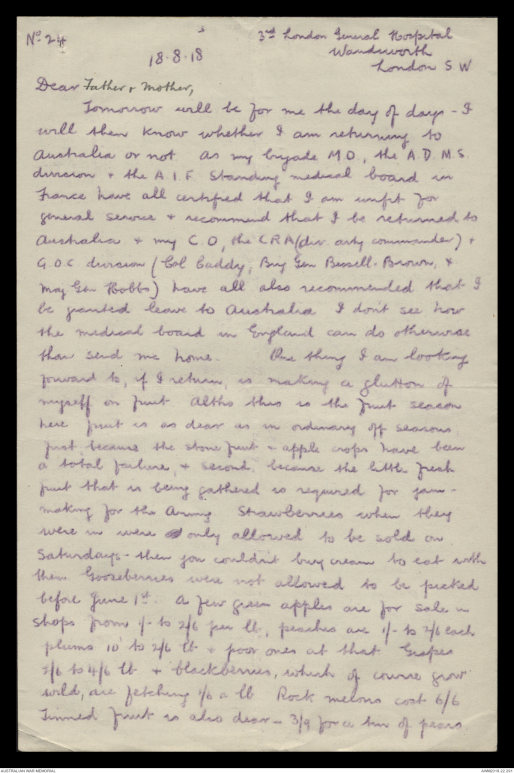 No 24
3rd London General Hospital
Wandsworth
London S W
18-8-18
Dear Father & Mother,
Tomorrow will be for me the day of days - I
will then know whether I am returning to
Australia or not. As my brigade M.O., the A.D.M.S.
division & the A.I.F. Standing medical board in
France have all certified that I am unfit for
general service & recommend that I be returned to
Australia & my C.O, the C.R.A (div. arty commander) &
G.O.C. division (Col Caddy, Brig Gen Bessell-Brown, &
Maj Gen Hobbs) have all also recommended that I
be granted leave to Australia I don't see how
the medical board in England can do otherwise
than send me home. One thing I am looking
forward to, if I return, is making a glutton of
myself on fruit Altho this is the fruit season
here fruit is as dear as in ordinary off seasons,
first because the stone fruit & apple crops have been
a total failure, & second, because the little fresh
fruit that is being gathered is required for jam-
making for the Army Strawberries when they
were in were only allowed to be sold on
Saturdays - then you couldn't buy cream to eat with
them Gooseberries were not allowed to be picked
before June 1st. A few green apples are for sale in
shops from 1/- to 2/6 per lb, peaches are 1/- to 2/6 each
plums 10 to 2/6 lb & poor ones at that Grapes
3/6 to 4/6 lb & blackberries, which of course grow
wild, are fetching 1/6 a lb Rock melons cost 6/6
Tinned fruit is also dear - 3/9 for a tin of pears
AUSTRALIAN WAR MEMORIAL